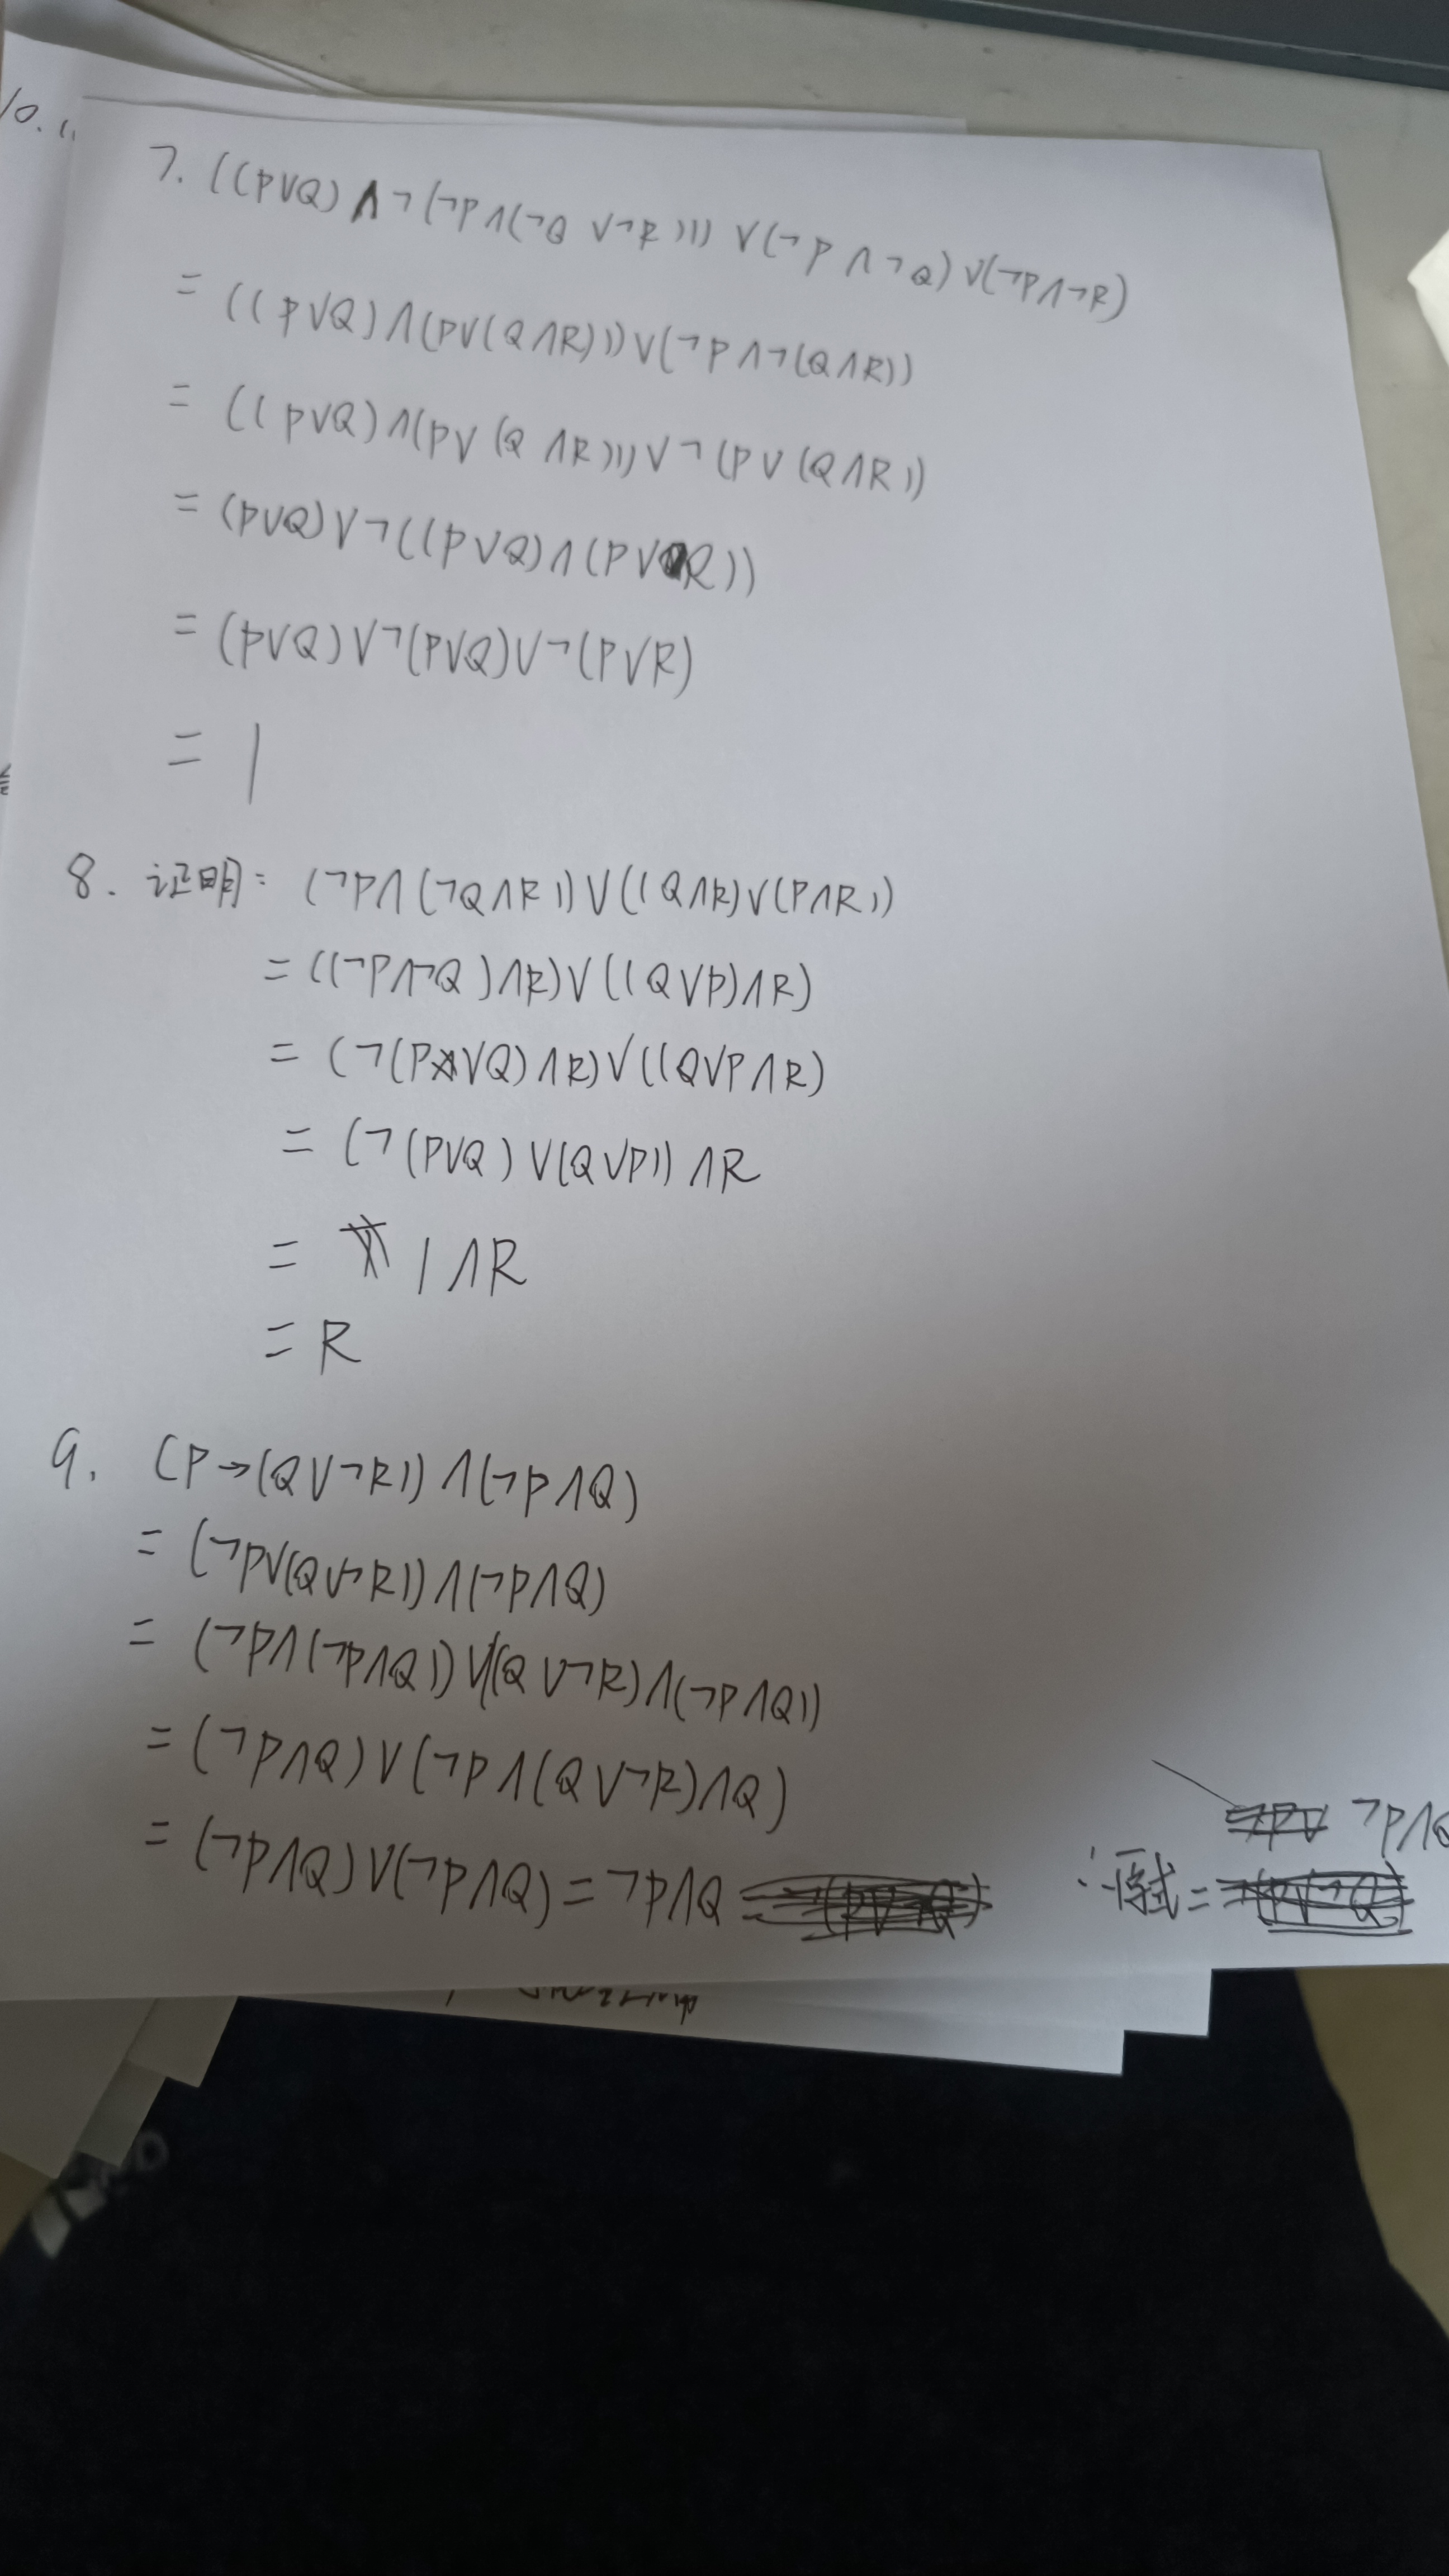 10. (1
7. ((P∨Q)∧¬(¬P∧(¬Q∨¬R)))∨(¬P∧¬Q)∨(¬P∧¬R)
= ((P∨Q)∧(P∨(Q∧R)))∨(¬P∧¬(Q∧R))
= ((P∨Q)∧(P∨(Q∧R)))∨¬(P∨(Q∧R))
= (P∨Q)∨¬((P∨Q)∧(P∨R))
= (P∨Q)∨¬(P∨Q)∨¬(P∨R)
= 1
8. 证明: (¬P∧(¬Q∧R))∨((Q∧R)∨(P∧R))
= ((¬P∧¬Q)∧R)∨((Q∨P)∧R)
= (¬(P∨Q)∧R)∨((Q∨P∧R)
= (¬(P∨Q)∨(Q∨P))∧R
= 1∧R
= R
9. (P→(Q∨¬R))∧(¬P∧Q)
= (¬P∨(Q∨¬R))∧(¬P∧Q)
= (¬P∧(¬P∧Q))∨((Q∨¬R)∧(¬P∧Q))
= (¬P∧Q)∨(¬P∧(Q∨¬R)∧Q)
= (¬P∧Q)∨(¬P∧Q)=¬P∧Q
∴原式= ¬P∧Q